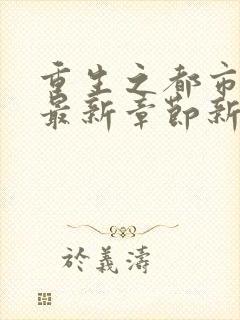 重生之都市
最新章節新
於義濤